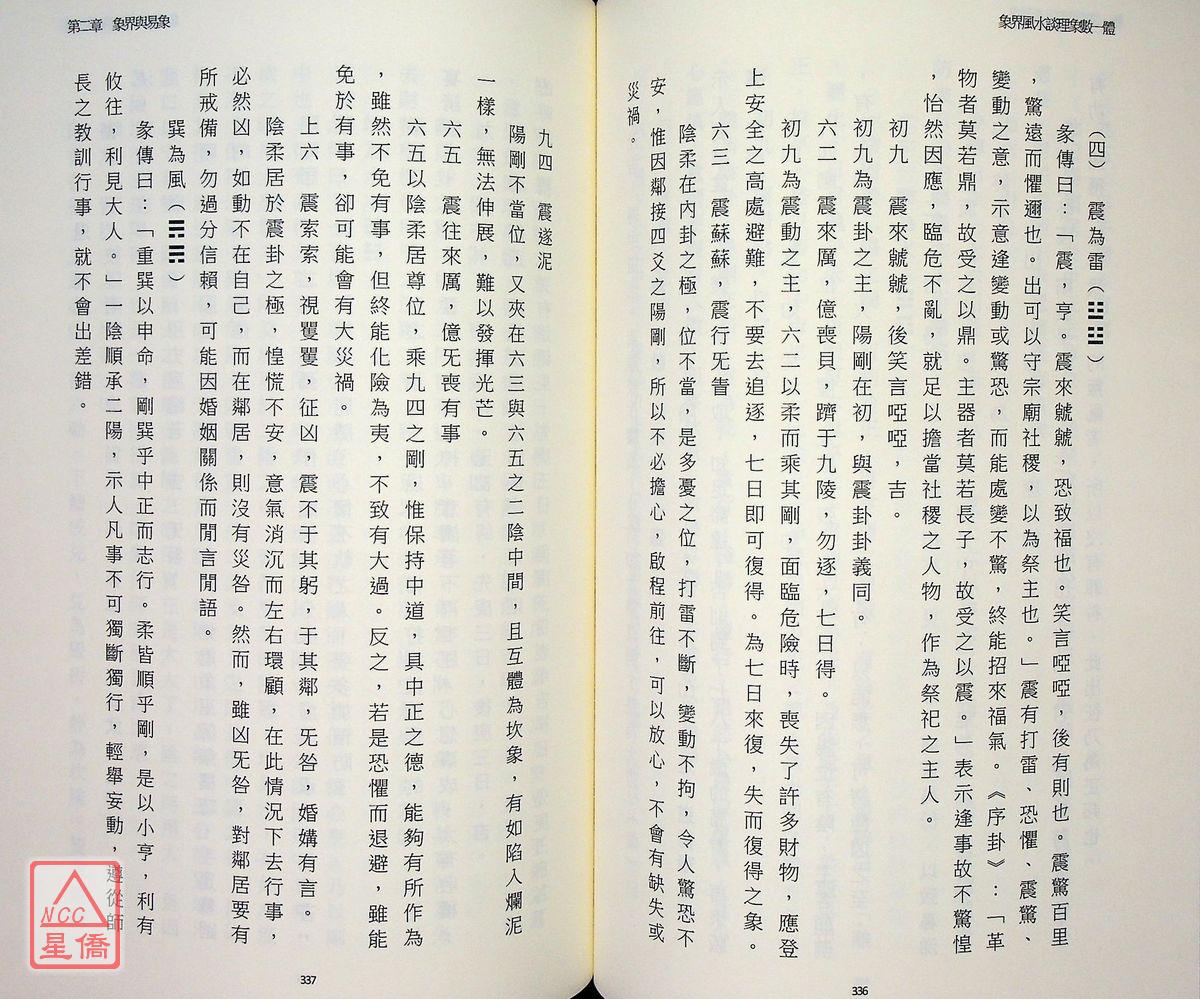 象界風水談理象數一體
（四）震為雷（☳☳）
彖傳曰：「震，亨。震來虩虩，恐致福也。笑言啞啞，後有則也。震驚百里
，驚遠而懼邇也。出可以守宗廟社稷，以為祭主也。」震有打雷、恐懼、震驚、
變動之意，示意逢變動或驚恐，而能處變不驚，終能招來福氣。《序卦》：「革
物者莫若鼎，故受之以鼎。主器者莫若長子，故受之以震。」表示逢事故不驚惶
，怡然因應，臨危不亂，就足以擔當社稷之人物，作為祭祀之主人。
初九　震來虩虩，後笑言啞啞，吉。
初九為震卦之主，陽剛在初，與震卦卦義同。
六二　震來厲，億喪貝，躋于九陵，勿逐，七日得。
初九為震動之主，六二以柔而乘其剛，面臨危險時，喪失了許多財物，應登
上安全之高處避難，不要去追逐，七日即可復得。為七日來復，失而復得之象。
六三　震蘇蘇，震行旡眚
陰柔在內卦之極，位不當，是多憂之位，打雷不斷，變動不拘，令人驚恐不
安，惟因鄰接四爻之陽剛，所以不必擔心，啟程前往，可以放心，不會有缺失或
災禍。
336
第二章　象界與易象
九四　震遂泥
陽剛不當位，又夾在六三與六五之二陰中間，且互體為坎象，有如陷入爛泥
一樣，無法伸展，難以發揮光芒。
六五　震往來厲，億旡喪有事
六五以陰柔居尊位，乘九四之剛，惟保持中道，具中正之德，能夠有所作為
，雖然不免有事，但終能化險為夷，不致有大過。反之，若是恐懼而退避，雖能
免於有事，卻可能會有大災禍。
上六　震索索，視矍矍，征凶，震不于其躬，于其鄰，旡咎，婚媾有言。
陰柔居於震卦之極，惶慌不安，意氣消沉而左右環顧，在此情況下去行事，
必然凶，如動不在自己，而在鄰居，則沒有災咎。然而，雖凶旡咎，對鄰居要有
所戒備，勿過分信賴，可能因婚姻關係而閒言閒語。
巽為風（☴☴）
彖傳曰：「重巽以申命，剛巽乎中正而志行。柔皆順乎剛，是以小亨，利有
攸往，利見大人。」一陰順承二陽，示人凡事不可獨斷獨行，輕舉妄動，遵從師
長之教訓行事，就不會出差錯。
337
NCC
星僑